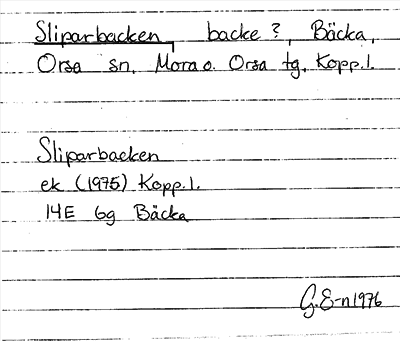 Sliparbacken, backe?, Bäcka,
Orsa sn. Mora o. Orsa tg, Kopp.l.
Sliparbacken
ek (1975) Kopp.l.
14E 6g Bäcka
G.E-n 1976